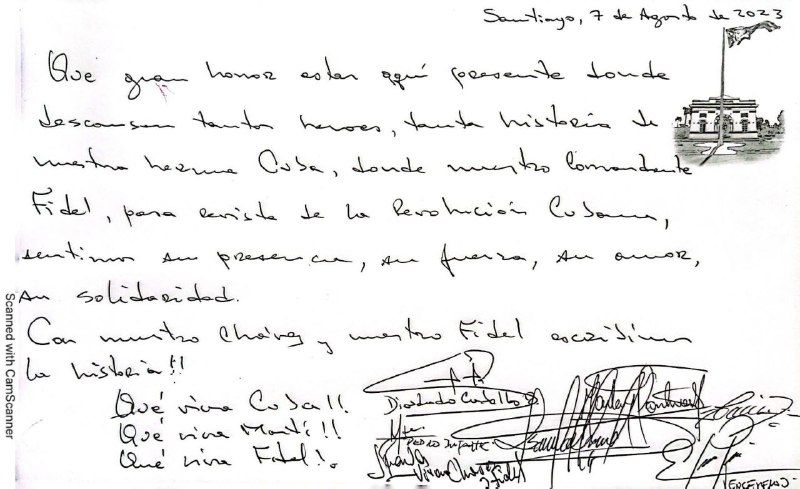 Santiago, 7 de Agosto de 2023
Que gran honor estar aquí presente donde
descansan tantos heroes, tanta historia de
nuestra hermana Cuba, donde nuestro Comandante
Fidel, pasa revista de la Revolución Cubana,
sentimos su presencia, su fuerza, su amor,
su solidaridad.
Con nuestro Chávez y nuestro Fidel escribimos
la historia!!
Qué viva Cuba!!
Qué viva Martí!!
Qué viva Fidel!
Diosdado Cabello R
PEDRO INFANTE
Vivan Chávez
y Fidel
VENCEREMOS
Scanned with CamScanner